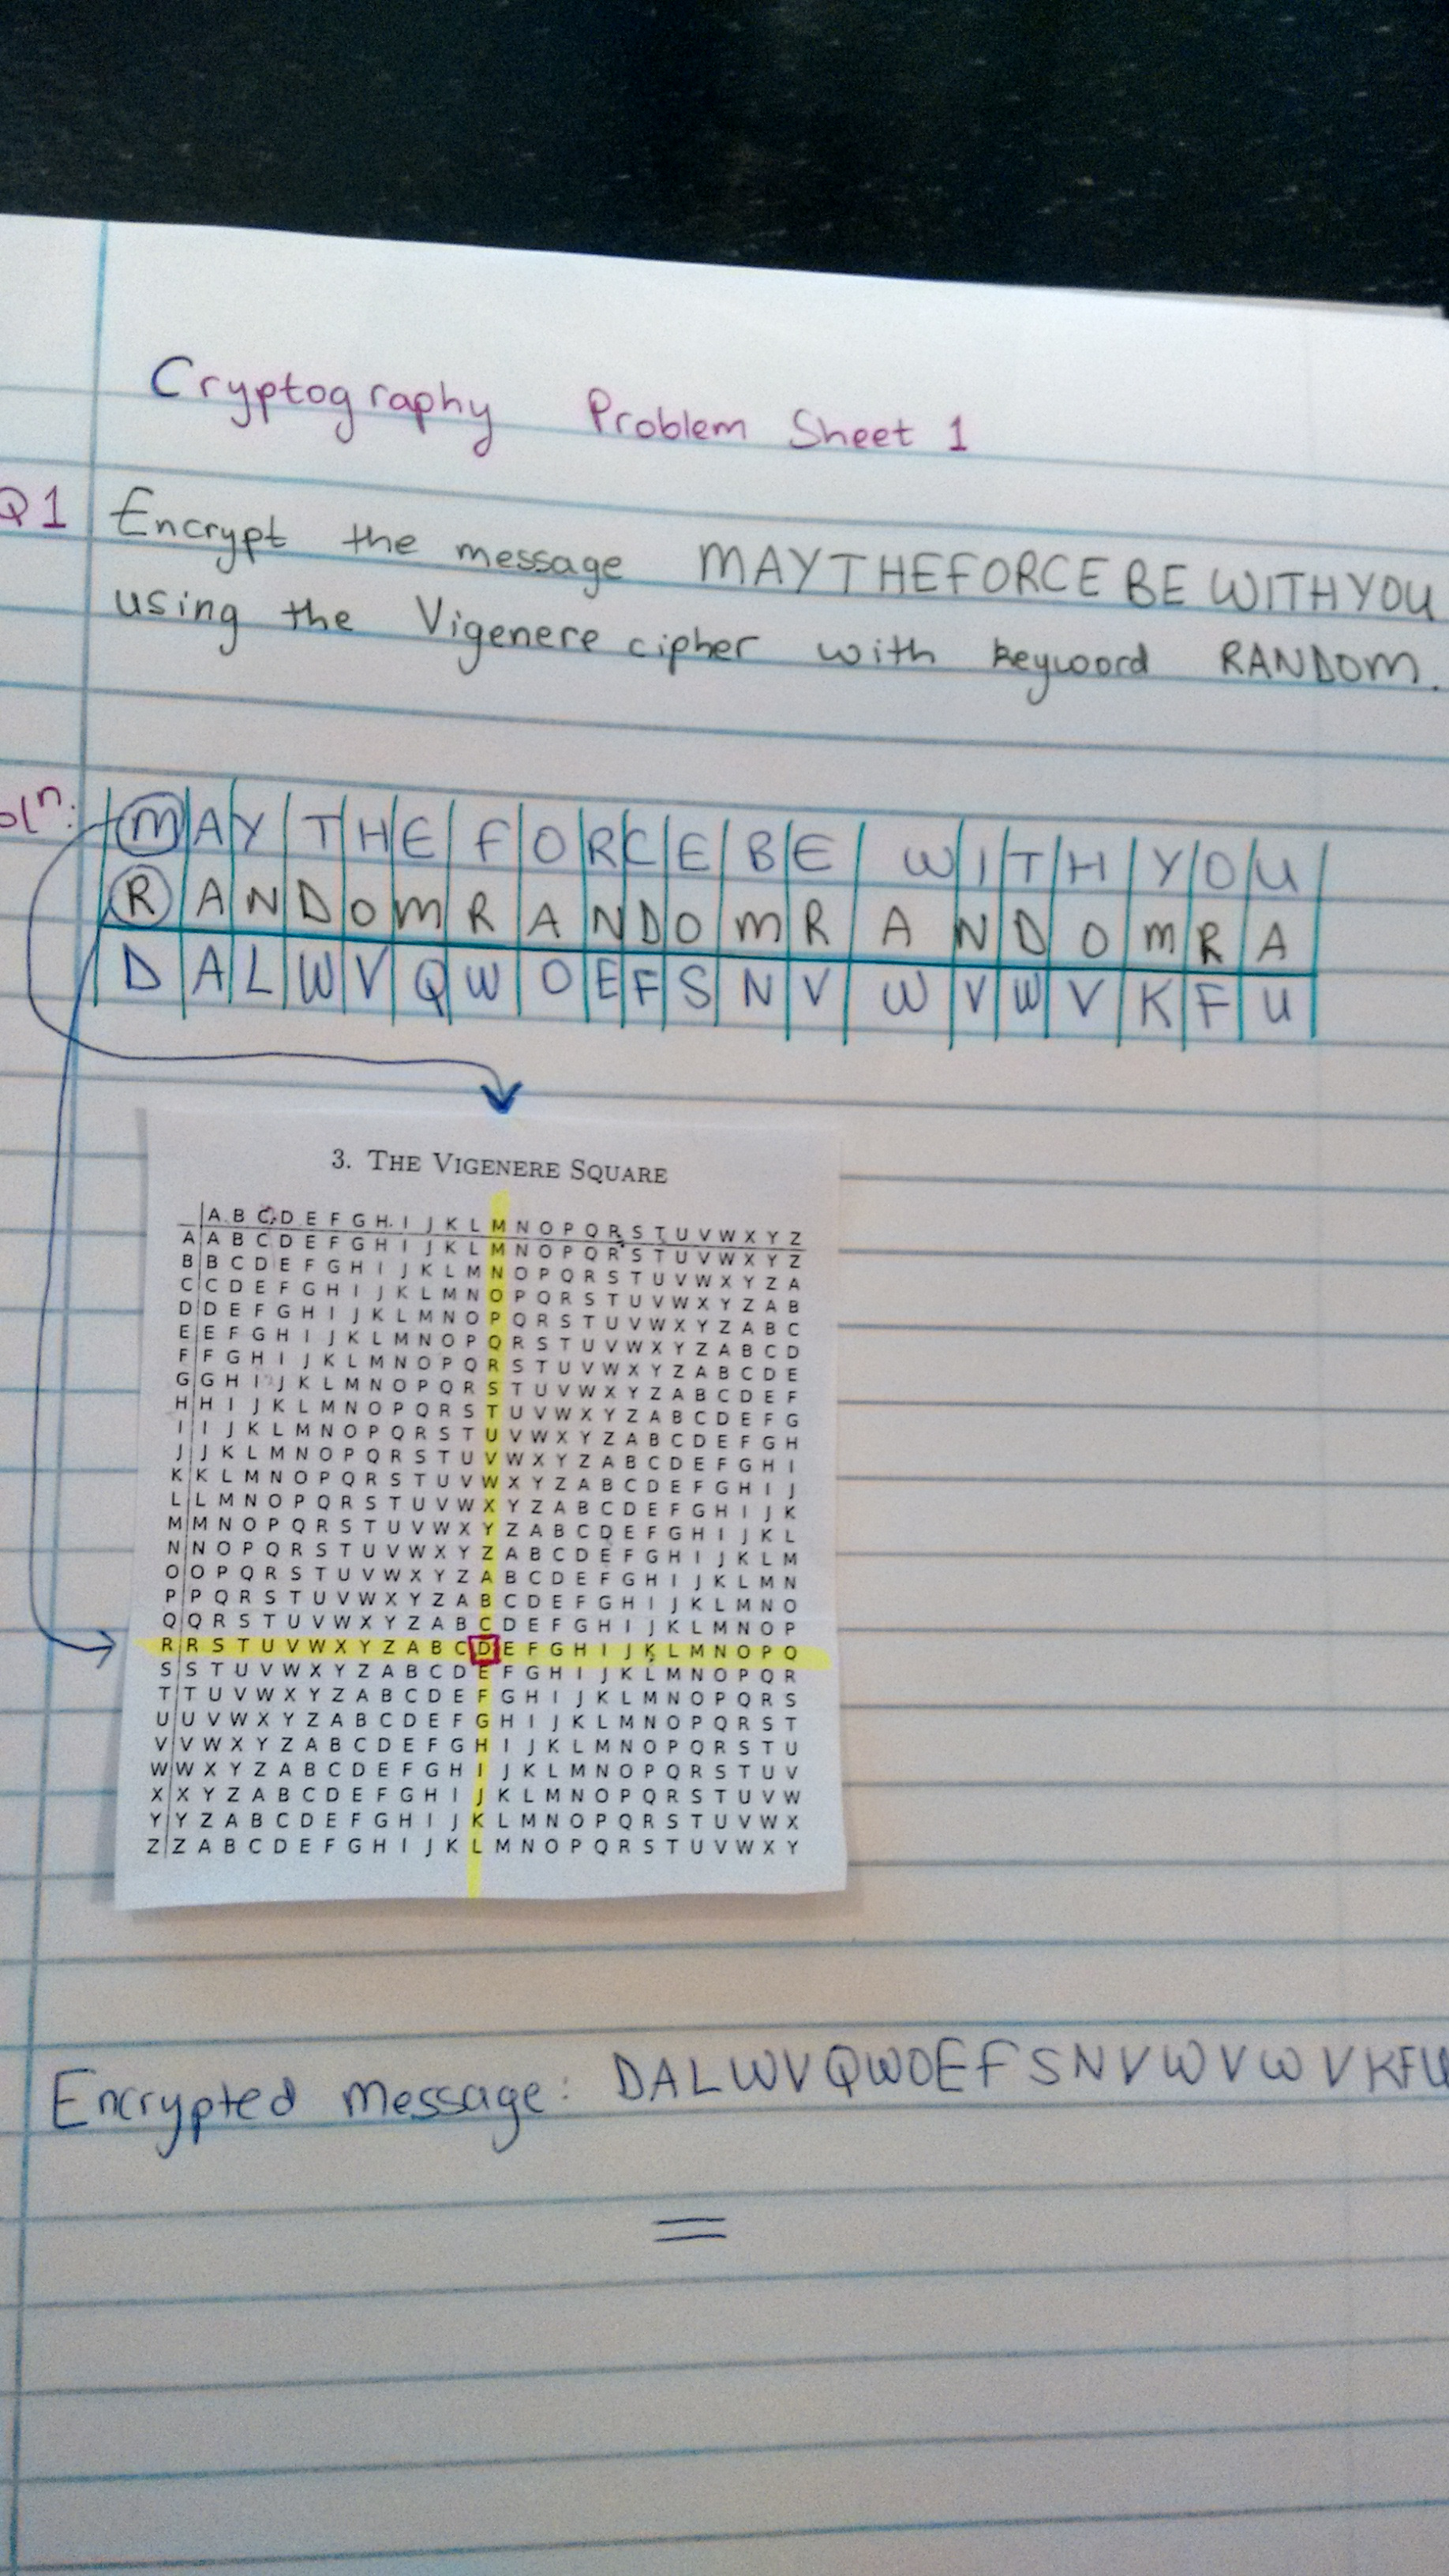 Cryptography Problem Sheet 1
Q1 Encrypt the message MAYTHEFORCEBEWITHYOU
using the Vigenere cipher with keyword RANDOM.
olⁿ: M A Y T H E F O R C E B E W I T H Y O U
R A N D O M R A N D O M R A N D O M R A
D A L W V Q W O E F S N V W V W V K F U
3. THE VIGENERE SQUARE
A B C D E F G H I J K L M N O P Q R S T U V W X Y Z
A A B C D E F G H I J K L M N O P Q R S T U V W X Y Z
B B C D E F G H I J K L M N O P Q R S T U V W X Y Z A
C C D E F G H I J K L M N O P Q R S T U V W X Y Z A B
D D E F G H I J K L M N O P Q R S T U V W X Y Z A B C
E E F G H I J K L M N O P Q R S T U V W X Y Z A B C D
F F G H I J K L M N O P Q R S T U V W X Y Z A B C D E
G G H I J K L M N O P Q R S T U V W X Y Z A B C D E F
H H I J K L M N O P Q R S T U V W X Y Z A B C D E F G
I I J K L M N O P Q R S T U V W X Y Z A B C D E F G H
J J K L M N O P Q R S T U V W X Y Z A B C D E F G H I
K K L M N O P Q R S T U V W X Y Z A B C D E F G H I J
L L M N O P Q R S T U V W X Y Z A B C D E F G H I J K
M M N O P Q R S T U V W X Y Z A B C D E F G H I J K L
N N O P Q R S T U V W X Y Z A B C D E F G H I J K L M
O O P Q R S T U V W X Y Z A B C D E F G H I J K L M N
P P Q R S T U V W X Y Z A B C D E F G H I J K L M N O
Q Q R S T U V W X Y Z A B C D E F G H I J K L M N O P
R R S T U V W X Y Z A B C D E F G H I J K L M N O P Q
S S T U V W X Y Z A B C D E F G H I J K L M N O P Q R
T T U V W X Y Z A B C D E F G H I J K L M N O P Q R S
U U V W X Y Z A B C D E F G H I J K L M N O P Q R S T
V V W X Y Z A B C D E F G H I J K L M N O P Q R S T U
W W X Y Z A B C D E F G H I J K L M N O P Q R S T U V
X X Y Z A B C D E F G H I J K L M N O P Q R S T U V W
Y Y Z A B C D E F G H I J K L M N O P Q R S T U V W X
Z Z A B C D E F G H I J K L M N O P Q R S T U V W X Y
Encrypted message: DALWVQWOEFSNVWVWVKFU